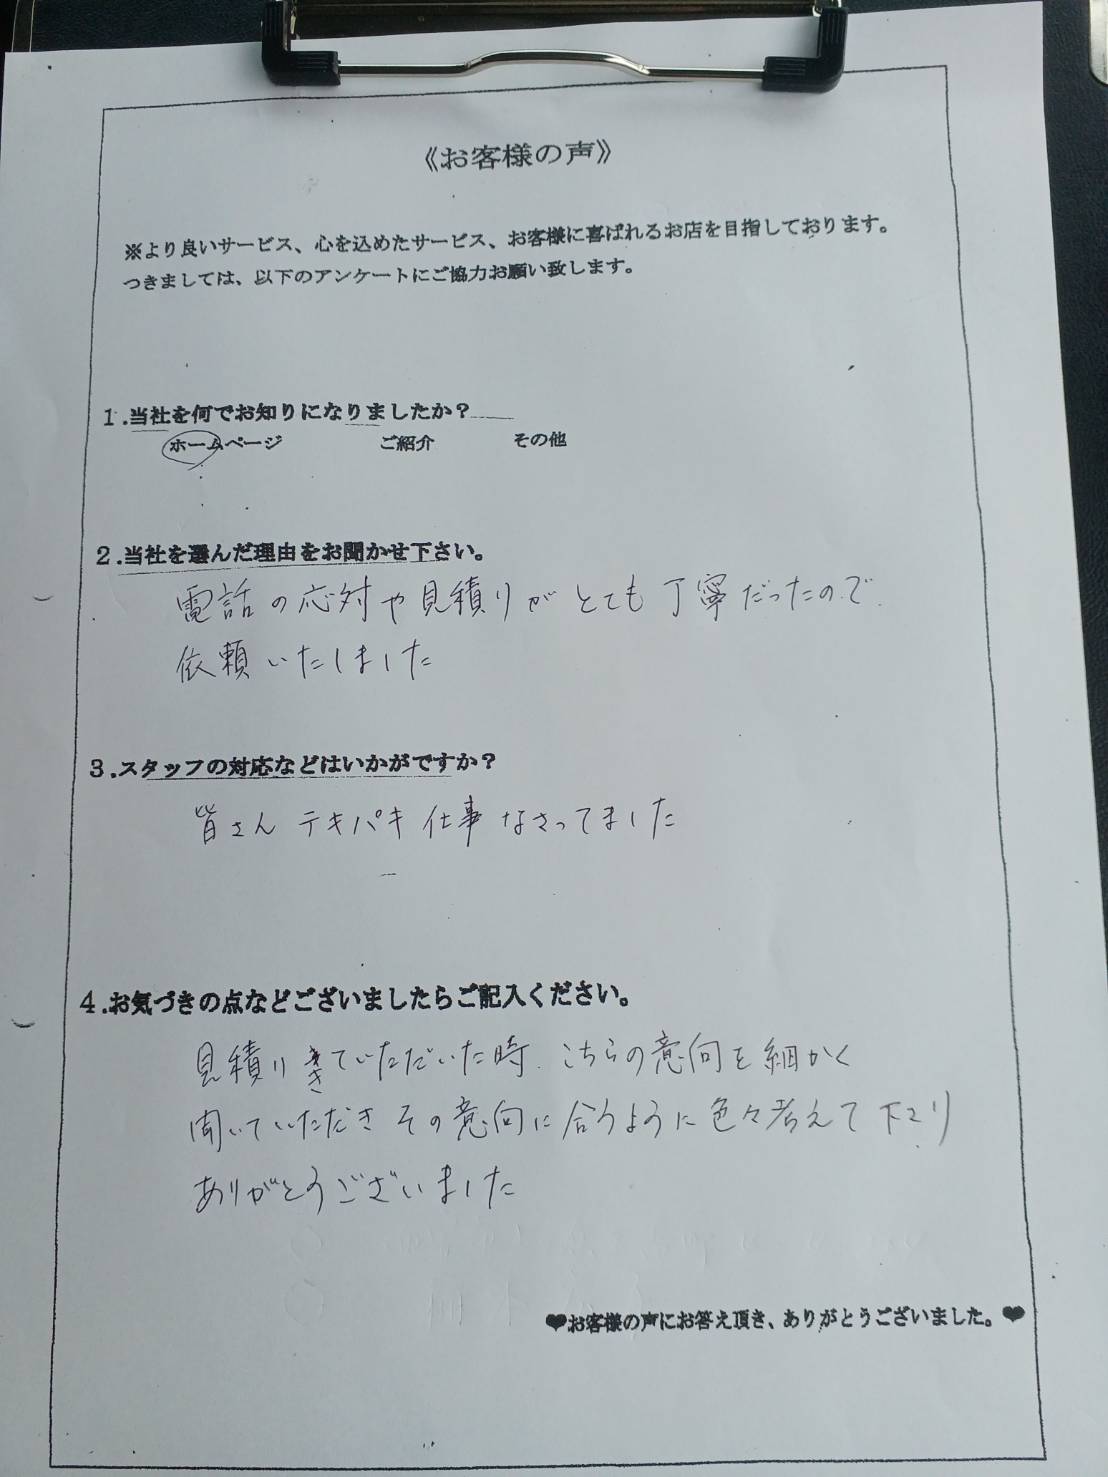 《お客様の声》
※より良いサービス、心を込めたサービス、お客様に喜ばれるお店を目指しております。
つきましては、以下のアンケートにご協力お願い致します。
1.当社を何でお知りになりましたか？
ホームページ ご紹介 その他
2.当社を選んだ理由をお聞かせ下さい。
電話の応対や見積りがとても丁寧だったので
依頼いたしました
3.スタッフの対応などはいかがですか？
皆さんテキパキ仕事なさってました
4.お気づきの点などございましたらご記入ください。
見積りきていただいた時、こちらの意向を細かく
聞いていただきその意向に合うように色々考えて下さり
ありがとうございました
❤お客様の声にお答え頂き、ありがとうございました。❤